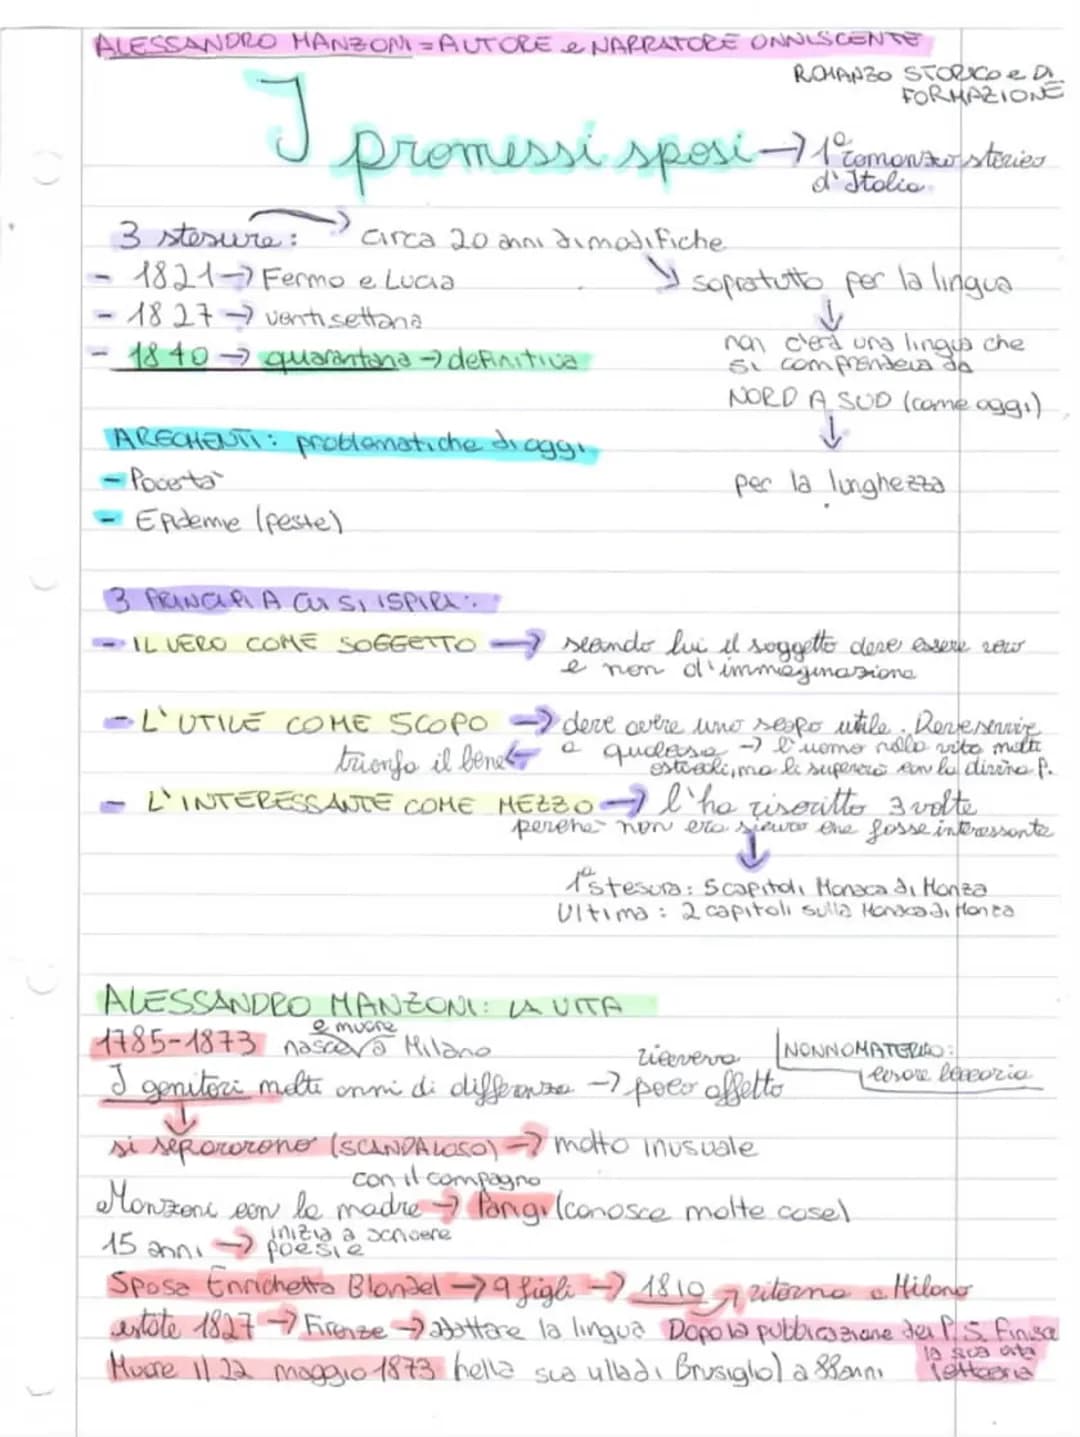 ALESSANDRO MANZONI = AUTORE e NARRATORE ONNISCENTE
ROMANZO STORICO e DI
FORMAZIONE
I promessi sposi → 1° romanzo storico
d'Italia
3 stesure: → circa 20 anni di modifiche
- 1821 → Fermo e Lucia
↘ sopratutto per la lingua
- 1827 → ventisettana
↓
- 1840 → quarantana → definitiva
non c'era una lingua che
si comprendeva da
NORD A SUD (come oggi)
↓
per la lunghezza
ARGOMENTI: problematiche di oggi
- Povertà
- Epidemie (peste)
3 PRINCIPI A CUI SI ISPIRA:
- IL VERO COME SOGGETTO → secondo lui il soggetto deve essere vero
e non d'immaginazione
- L'UTILE COME SCOPO → deve avere uno scopo utile. Deve servire
a qualcosa → l'uomo nella vita molti
ostacoli, ma li supererà con la divina P.
trionfa il bene ←
- L'INTERESSANTE COME MEZZO → l'ha riscritto 3 volte
perché non era sicuro che fosse interessante
↓
1° stesura: 5 capitoli Monaca di Monza
Ultima: 2 capitoli sulla Monaca di Monza
ALESSANDRO MANZONI: LA VITA
1785-1873 nasce e muore a Milano
NONNO MATERNO:
Cesare Beccaria
I genitori molti anni di differenza → riceveva poco affetto
↓
si separarono (SCANDALOSO) → molto inusuale
Manzoni con la madre con il compagno → Parigi (conosce molte cose)
15 anni → inizia a scrivere poesie
Sposa Enrichetta Blondel → 9 figli → 1810 → ritorna a Milano
estate 1827 → Firenze → adattare la lingua
Dopo la pubblicazione dei P.S. finisce
la sua vita
letteraria
Muore il 22 maggio 1873 (nella sua villa di Brusiglio) a 88 anni